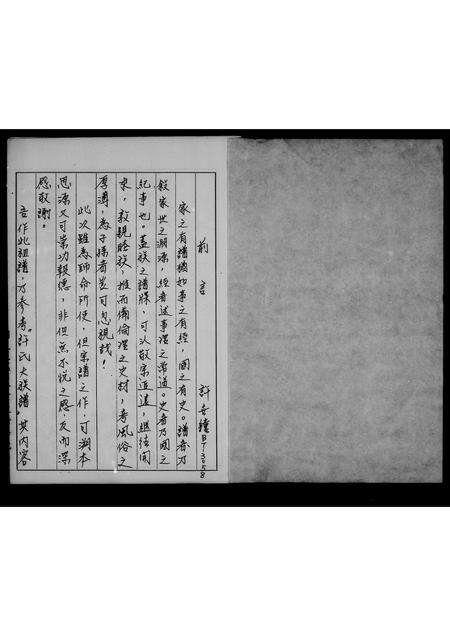 前言
許安鐘 BT-3058
家之有譜猶如事之有經,國之有史。譜者乃
敍家世之淵源,經者述事理之常道。史者乃國之
紀事也。蓋族之譜牒,可以敬宗追遠,繼往開
來,敦親睦族,推而備倫理之史材,考風俗之
厚薄,為子孫者豈可忽視哉!
此次雖為師命所使,但宗譜之作,可溯本
思源又可崇功報德,非但無不悦之思,反而深
感敬謝。
吾作此祖譜,乃參考「許氏大族譜」其內容